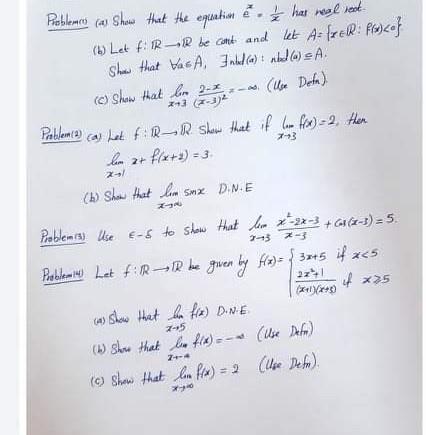 Problem(1) (a) Show that the equation e^x = 1/x has real root.
(b) Let f: ℝ→ℝ be cont and let A = {x∈ℝ: f(x)<0}.
Show that ∀a∈A, ∃ nbd(a): nbd(a) ⊆ A.
(c) Show that lim x→3 (2-x)/(x-3)² = -∞. (Use Defn).
Problem(2) (a) Let f: ℝ→ℝ. Show that if lim x→3 f(x) = 2, then
lim x→1 x + f(x+2) = 3.
(b) Show that lim x→∞ sin x D.N.E
Problem(3) Use ε-δ to show that lim x→3 (x²-2x-3)/(x-3) + Cos(x-3) = 5.
Problem(4) Let f: ℝ→ℝ be given by f(x) = { 3x+5 if x<5
(2x²+1)/((x+1)(x+3)) if x≥5
(a) Show that lim x→5 f(x) D.N.E.
(b) Show that lim x→-∞ f(x) = -∞ (Use Defn)
(c) Show that lim x→∞ f(x) = 2 (Use Defn).